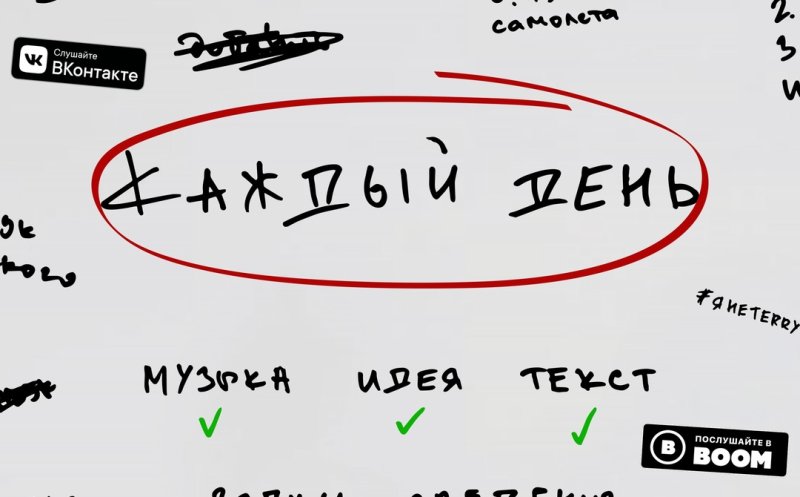 самолета
2.
3
Слушайте
ВКонтакте
КАЖДЫЙ ДЕНЬ
#ЯНЕTERRY
МУЗЫКА ИДЕЯ ТЕКСТ
ПОСЛУШАЙТЕ В
BOOM